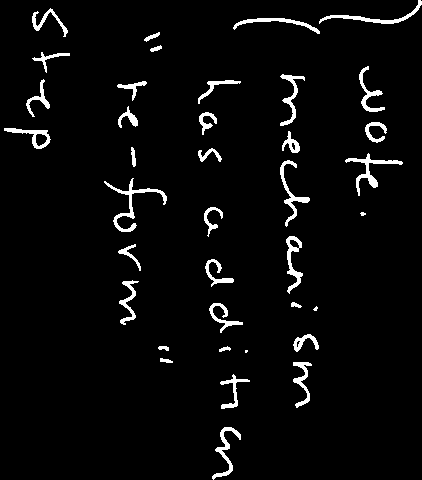 note.
mechanism
has addition
"re-form"
step